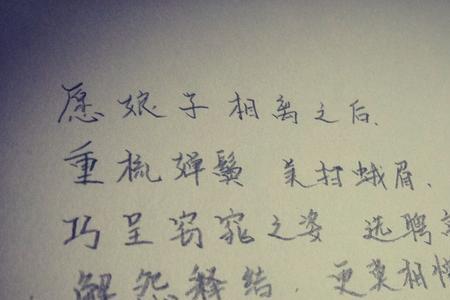 愿娘子相离之后、
重梳婵鬓 美扫蛾眉、
巧呈窈窕之姿 选聘高
解怨释结、更莫相憎